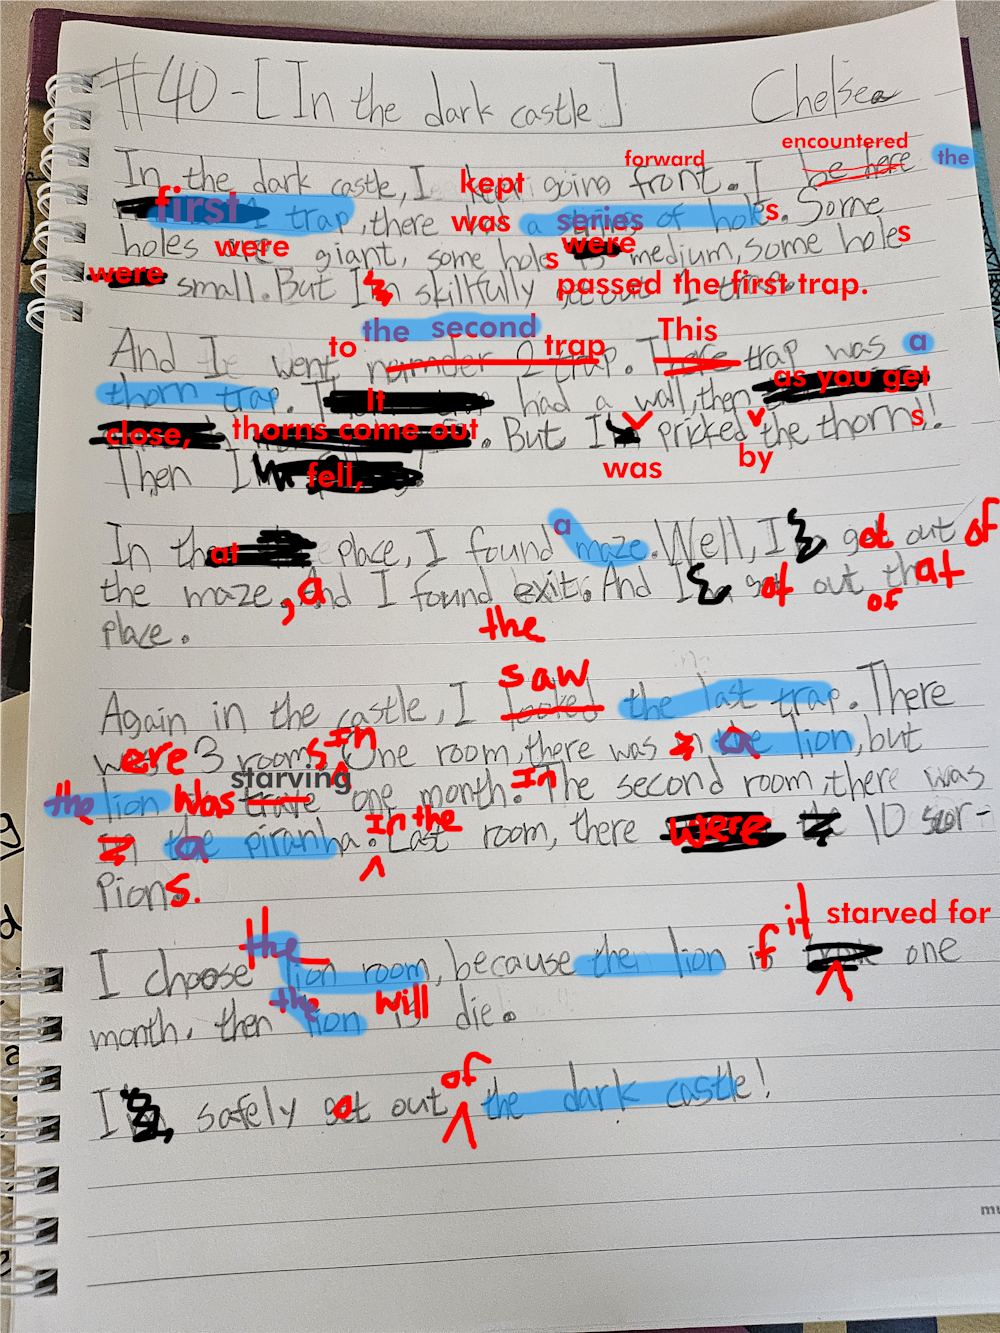 #40 - [In the dark castle] Chelsea
encountered
In the dark castle, I kept going front. I be here the
forward
first trap, there was a series of holes. Some
holes were giant, some holes were medium, some holes
were small. But I skillfully passed the first trap.
the second
And I went to number 2 trap. This trap was a
trap
thorn trap. It had a wall, then as you get
close, thorns come out. But I pricked the thorns!
was by
Then I fell,
In that place, I found a maze. Well, I got out of
the maze, and I found exit. And I got out of that
the
place.
saw
Again in the castle, I looked the last trap. There
were 3 rooms. In One room, there was a lion, but
starving
the lion was one month. In The second room, there was
a piranha. In the Last room, there were 10 scor-
pions.
it starved for
I choose the lion room, because then lion if one
month. then the lion will die.
of
I safely got out the dark castle!